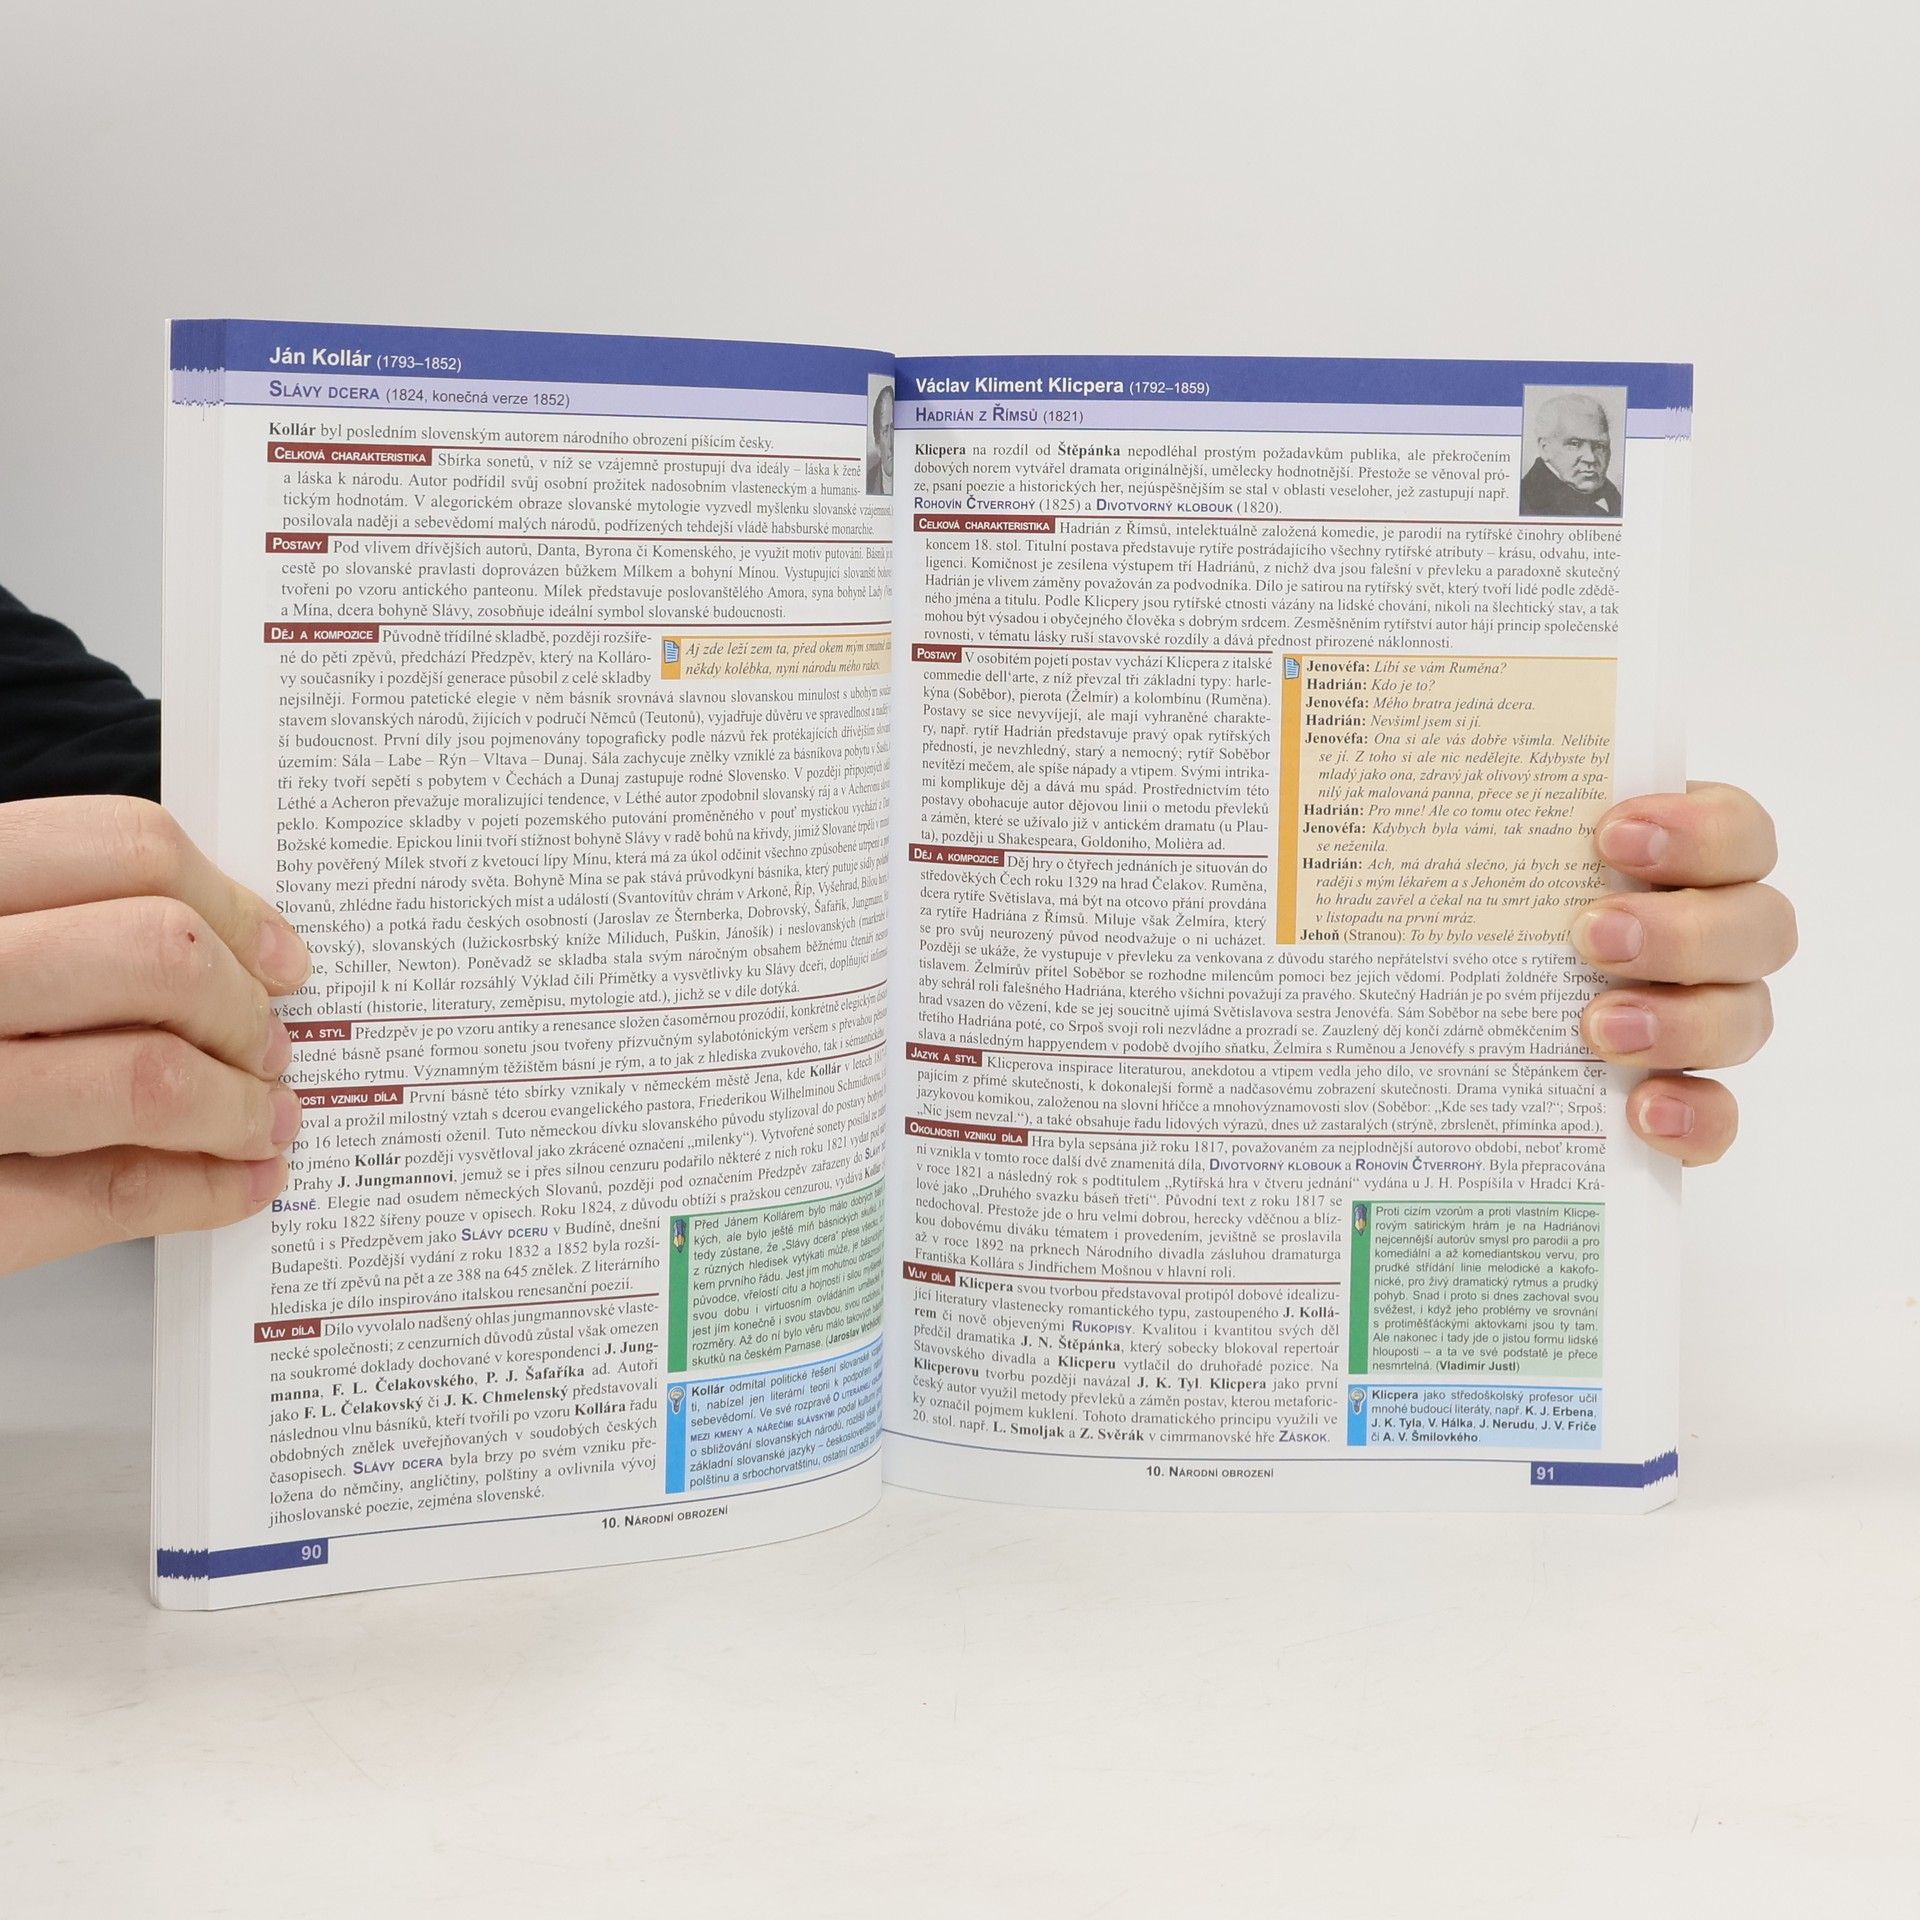 Ján Kollár (1793–1852)
SLÁVY DCERA (1824, konečná verze 1852)
Kollár byl posledním slovenským autorem národního obrození píšícím česky.
CELKOVÁ CHARAKTERISTIKA Sbírka sonetů, v níž se vzájemně prostupují dva ideály – láska k ženě
a láska k národu. Autor podřídil svůj osobní prožitek nadosobním vlasteneckým a humanis-
tickým hodnotám. V alegorickém obraze slovanské mytologie vyzvedl myšlenku slovanské vzájemnosti,
posilovala naději a sebevědomí malých národů, podřízených tehdejší vládě habsburské monarchie.
POSTAVY Pod vlivem dřívějších autorů, Danta, Byrona či Komenského, je využit motiv putování. Básník
cestě po slovanské pravlasti doprovázen bůžkem Mílkem a bohyní Mínou. Vystupující slovanští
tvořeni po vzoru antického panteonu. Mílek představuje poslovanštělého Amora, syna bohyně Lady
a Mína, dcera bohyně Slávy, zosobňuje ideální symbol slovanské budoucnosti.
DĚJ A KOMPOZICE Původně třídílné skladbě, později rozšíře-
né do pěti zpěvů, předchází Předzpěv, který na Kolláro-
vy současníky i pozdější generace působil z celé skladby
nejsilněji. Formou patetické elegie v něm básník srovnává slavnou slovanskou minulost s ubohým
stavem slovanských národů, žijících v područí Němců (Teutonů), vyjadřuje důvěru ve spravedlnost a
ší budoucnost. První díly jsou pojmenovány topograficky podle názvů řek protékajících dřívějším
územím: Sála – Labe – Rýn – Vltava – Dunaj. Sála zachycuje znělky vzniklé za básníkova pobytu v
tři řeky tvoří sepětí s pobytem v Čechách a Dunaj zastupuje rodné Slovensko. V později připojených
Léthé a Acheron převažuje moralizující tendence, v Léthé autor zpodobnil slovanský ráj a v Acheronu
peklo. Kompozice skladby v pojetí pozemského putování proměněného v pouť mystickou vychází z
Božské komedie. Epickou linii tvoří stížnost bohyně Slávy v radě bohů na křivdy, jimiž Slované trpěli v
Bohy pověřený Mílek stvoří z kvetoucí lípy Mínu, která má za úkol odčinit všechno způsobené utrpení a
Slovany mezi přední národy světa. Bohyně Mína se pak stává průvodkyní básníka, který putuje sídly
Slovanů, zhlédne řadu historických míst a událostí (Svantovítův chrám v Arkoně, Říp, Vyšehrad, Bílou
menského) a potká řadu českých osobností (Jaroslav ze Šternberka, Dobrovský, Šafařík, Jungmann,
kovský), slovanských (lužickosrbský kníže Miliduch, Puškin, Jánošík) i neslovanských
Schiller, Newton). Poněvadž se skladba stala svým náročným obsahem běžnému čtenáři
připojil k ní Kollár rozsáhlý Výklad čili Přímětky a vysvětlivky ku Slávy dceři, doplňující
všech oblastí (historie, literatury, zeměpisu, mytologie atd.), jichž se v díle dotýká.
K A STYL Předzpěv je po vzoru antiky a renesance složen časoměrnou prozódií, konkrétně elegickým
sledné básně psané formou sonetu jsou tvořeny přízvučným sylabotónickým veršem s převahou
rochejského rytmu. Významným těžištěm básní je rým, a to jak z hlediska zvukového, tak i sémantického.
NOSTI VZNIKU DÍLA První básně této sbírky vznikaly v německém městě Jena, kde Kollár v letech
oval a prožil milostný vztah s dcerou evangelického pastora, Friederikou Wilhelminou Schmidtovou,
po 16 letech známosti oženil. Tuto německou dívku slovanského původu stylizoval do postavy bohyně
to jméno Kollár později vysvětloval jako zkrácené označení „milenky“). Vytvořené sonety posílal ze
Prahy J. Jungmannovi, jemuž se i přes silnou cenzuru podařilo některé z nich roku 1821 vydat pod
BÁSNĚ. Elegie nad osudem německých Slovanů, později pod označením Předzpěv zařazeny do SLÁVY
byly roku 1822 šířeny pouze v opisech. Roku 1824, z důvodu obtíží s pražskou cenzurou, vydává Kollár
sonetů i s Předzpěvem jako SLÁVY DCERU v Budíně, dnešní
Budapešti. Pozdější vydání z roku 1832 a 1852 byla rozší-
řena ze tří zpěvů na pět a ze 388 na 645 znělek. Z literárního
hlediska je dílo inspirováno italskou renesanční poezií.
VLIV DÍLA Dílo vyvolalo nadšený ohlas jungmannovské vlaste-
necké společnosti; z cenzurních důvodů zůstal však omezen
na soukromé doklady dochované v korespondenci J. Jung-
manna, F. L. Čelakovského, P. J. Šafaříka ad. Autoři
jako F. L. Čelakovský či J. K. Chmelenský představovali
následnou vlnu básníků, kteří tvořili po vzoru Kollára řadu
obdobných znělek uveřejňovaných v soudobých českých
časopisech. SLÁVY DCERA byla brzy po svém vzniku pře-
ložena do němčiny, angličtiny, polštiny a ovlivnila vývoj
jihoslovanské poezie, zejména slovenské.
Aj zde leží zem ta, před okem mým smutně
někdy kolébka, nyní národu mého rakev.
Před Jánem Kollárem bylo málo dobrých
kých, ale bylo ještě míň básnických skutků.
tedy zůstane, že „Slávy dcera“ přese všecko,
z různých hledisek vytýkati může, je
kem prvního řádu. Jest jím mohutnou
původce, vřelostí citu a hojností i silou
svou dobu i virtuosním ovládáním
jest jím konečně i svou stavbou, svou
rozměry. Až do ní bylo věru málo takových
skutků na českém Parnase. (Jaroslav Vrchlický)
Kollár odmítal politické řešení slovanské
ti, nabízel jen literární teorii k podpoření
sebevědomí. Ve své rozpravě O LITERÁRNÉJ
MEZI KMENY A NÁŘEČÍMI SLÁVSKÝMI podal
o sbližování slovanských národů, rozlišil
základní slovanské jazyky –
polštinu a srbochorvatštinu, ostatní označil za
10. NÁRODNÍ OBROZENÍ
90
Václav Kliment Klicpera (1792–1859)
HADRIÁN Z ŘÍMSŮ (1821)
Klicpera na rozdíl od Štěpánka nepodléhal prostým požadavkům publika, ale překročením
dobových norem vytvářel dramata originálnější, umělecky hodnotnější. Přestože se věnoval pró-
ze, psaní poezie a historických her, nejúspěšnějším se stal v oblasti veseloher, jež zastupují např.
ROHOVÍN ČTVERROHÝ (1825) a DIVOTVORNÝ KLOBOUK (1820).
CELKOVÁ CHARAKTERISTIKA Hadrián z Římsů, intelektuálně založená komedie, je parodií na rytířské činohry oblíbené
koncem 18. stol. Titulní postava představuje rytíře postrádajícího všechny rytířské atributy – krásu, odvahu, inte-
ligenci. Komičnost je zesílena výstupem tří Hadriánů, z nichž dva jsou falešní v převleku a paradoxně skutečný
Hadrián je vlivem záměny považován za podvodníka. Dílo je satirou na rytířský svět, který tvoří lidé podle zdědě-
ného jména a titulu. Podle Klicpery jsou rytířské ctnosti vázány na lidské chování, nikoli na šlechtický stav, a tak
mohou být výsadou i obyčejného člověka s dobrým srdcem. Zesměšněním rytířství autor hájí princip společenské
rovnosti, v tématu lásky ruší stavovské rozdíly a dává přednost přirozené náklonnosti.
POSTAVY V osobitém pojetí postav vychází Klicpera z italské
commedie dell‘arte, z níž převzal tři základní typy: harle-
kýna (Soběbor), pierota (Želmír) a kolombínu (Ruměna).
Postavy se sice nevyvíjejí, ale mají vyhraněné charakte-
ry, např. rytíř Hadrián představuje pravý opak rytířských
předností, je nevzhledný, starý a nemocný; rytíř Soběbor
nevítězí mečem, ale spíše nápady a vtipem. Svými intrika-
mi komplikuje děj a dává mu spád. Prostřednictvím této
postavy obohacuje autor dějovou linii o metodu převleků
a záměn, které se užívalo již v antickém dramatu (u Plau-
ta), později u Shakespeara, Goldoniho, Molièra ad.
Jenovéfa: Líbí se vám Ruměna?
Hadrián: Kdo je to?
Jenovéfa: Mého bratra jediná dcera.
Hadrián: Nevšiml jsem si jí.
Jenovéfa: Ona si ale vás dobře všimla. Nelíbíte
se jí. Z toho si ale nic nedělejte. Kdybyste byl
mladý jako ona, zdravý jak olivový strom a spa-
nilý jak malovaná panna, přece se jí nezalíbíte.
Hadrián: Pro mne! Ale co tomu otec řekne!
Jenovéfa: Kdybych byla vámi, tak snadno
se neženila.
Hadrián: Ach, má drahá slečno, já bych se nej-
raději s mým lékařem a s Jehoném do otcovské-
ho hradu zavřel a čekal na tu smrt jako
v listopadu na první mráz.
Jehoň (Stranou): To by bylo veselé živobytí!
DĚJ A KOMPOZICE Děj hry o čtyřech jednáních je situován do
středověkých Čech roku 1329 na hrad Čelakov. Ruměna,
dcera rytíře Světislava, má být na otcovo přání provdána
za rytíře Hadriána z Římsů. Miluje však Želmíra, který
se pro svůj neurozený původ neodvažuje o ni ucházet.
Později se ukáže, že vystupuje v převleku za venkovana z důvodu starého nepřátelství svého otce s rytířem
tislavem. Želmírův přítel Soběbor se rozhodne milencům pomoci bez jejich vědomí. Podplatí žoldnéře Srpoše,
aby sehrál roli falešného Hadriána, kterého všichni považují za pravého. Skutečný Hadrián je po svém příjezdu
hrad vsazen do vězení, kde se jej soucitně ujímá Světislavova sestra Jenovéfa. Sám Soběbor na sebe bere
třetího Hadriána poté, co Srpoš svoji roli nezvládne a prozradí se. Zauzlený děj končí zdárně obměkčením
slava a následným happyendem v podobě dvojího sňatku, Želmíra s Ruměnou a Jenovéfy s pravým Hadriánem.
JAZYK A STYL Klicperova inspirace literaturou, anekdotou a vtipem vedla jeho dílo, ve srovnání se Štěpánkem čer-
pajícím z přímé skutečnosti, k dokonalejší formě a nadčasovému zobrazení skutečnosti. Drama vyniká situační a
jazykovou komikou, založenou na slovní hříčce a mnohovýznamovosti slov (Soběbor: „Kde ses tady vzal?“; Srpoš:
„Nic jsem nevzal.“), a také obsahuje řadu lidových výrazů, dnes už zastaralých (strýně, zbrslenět, přímínka apod.).
OKOLNOSTI VZNIKU DÍLA Hra byla sepsána již roku 1817, považovaném za nejplodnější autorovo období, neboť kromě
ní vznikla v tomto roce další dvě znamenitá díla, DIVOTVORNÝ KLOBOUK a ROHOVÍN ČTVERROHÝ. Byla přepracována
v roce 1821 a následný rok s podtitulem „Rytířská hra v čtveru jednání“ vydána u J. H. Pospíšila v Hradci Krá-
lové jako „Druhého svazku báseň třetí“. Původní text z roku 1817 se
nedochoval. Přestože jde o hru velmi dobrou, herecky vděčnou a blíz-
kou dobovému diváku tématem i provedením, jevištně se proslavila
až v roce 1892 na prknech Národního divadla zásluhou dramaturga
Františka Kollára s Jindřichem Mošnou v hlavní roli.
VLIV DÍLA Klicpera svou tvorbou představoval protipól dobové idealizu-
jící literatury vlastenecky romantického typu, zastoupeného J. Kollá-
rem či nově objevenými RUKOPISY. Kvalitou i kvantitou svých děl
předčil dramatika J. N. Štěpánka, který sobecky blokoval repertoár
Stavovského divadla a Klicperu vytlačil do druhořadé pozice. Na
Klicperovu tvorbu později navázal J. K. Tyl. Klicpera jako první
český autor využil metody převleků a záměn postav, kterou metaforic-
ky označil pojmem kuklení. Tohoto dramatického principu využili ve
20. stol. např. L. Smoljak a Z. Svěrák v cimrmanovské hře ZÁSKOK.
Proti cizím vzorům a proti vlastním Klicpe-
rovým satirickým hrám je na Hadriánovi
nejcennější autorův smysl pro parodii a pro
komediální a až komediantskou vervu, pro
prudké střídání linie melodické a kakofo-
nické, pro živý dramatický rytmus a prudký
pohyb. Snad i proto si dnes zachoval svou
svěžest, i když jeho problémy ve srovnání
s protiměšťáckými aktovkami jsou ty tam.
Ale nakonec i tady jde o jistou formu lidské
hlouposti – a ta ve své podstatě je přece
nesmrtelná. (Vladimír Justl)
Klicpera jako středoškolský profesor učil
mnohé budoucí literáty, např. K. J. Erbena,
J. K. Tyla, V. Hálka, J. Nerudu, J. V. Friče
či A. V. Šmilovkého.
10. NÁRODNÍ OBROZENÍ
91